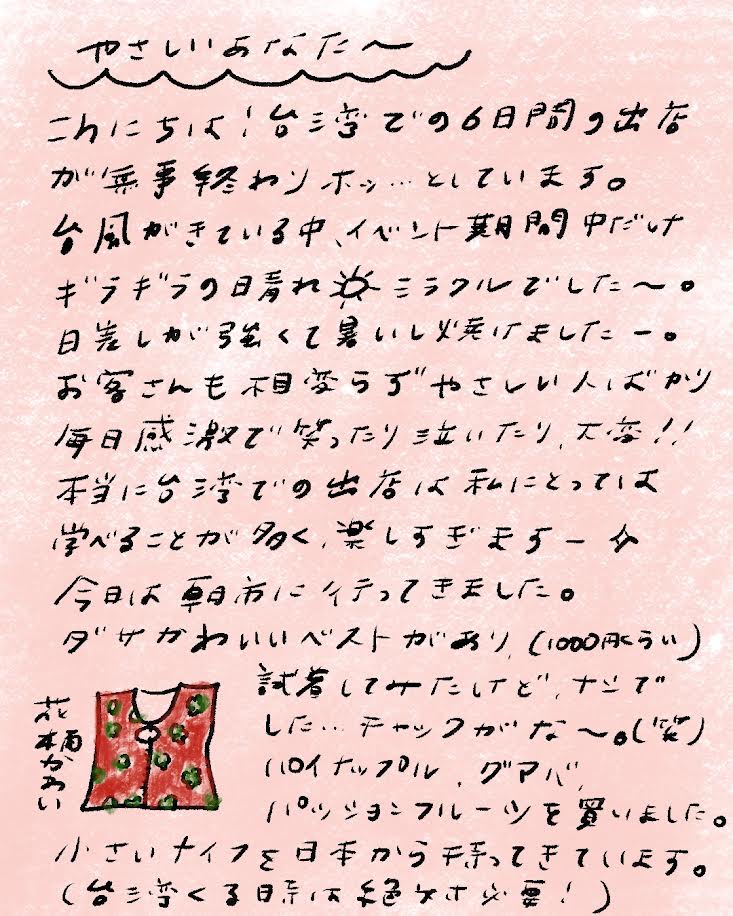 やさしいあなた〜
こんにちは！台湾での6日間の出店
が無事終わりホッ…としています。
台風がきている中、イベント期間中だけ
ギラギラの日晴れ☀ミラクルでした〜。
日差しが強くて暑いし焼けましたー。
お客さんも相変らずやさしい人ばかり
毎日感激で笑ったり泣いたり、大変！！
本当に台湾での出店は私にとっては
学べることが多く、楽しすぎますー☆
今日は朝市に行ってきました。
ダサかわいいベストがあり、(1000円くらい)
試着してみたけど、ナシで
した…チャックがな〜。(笑)
花柄かわいい
パイナップル、グアバ、
パッションフルーツを買いました。
小さいナイフを日本から持ってきています。
(台湾くる時は絶対必要！)